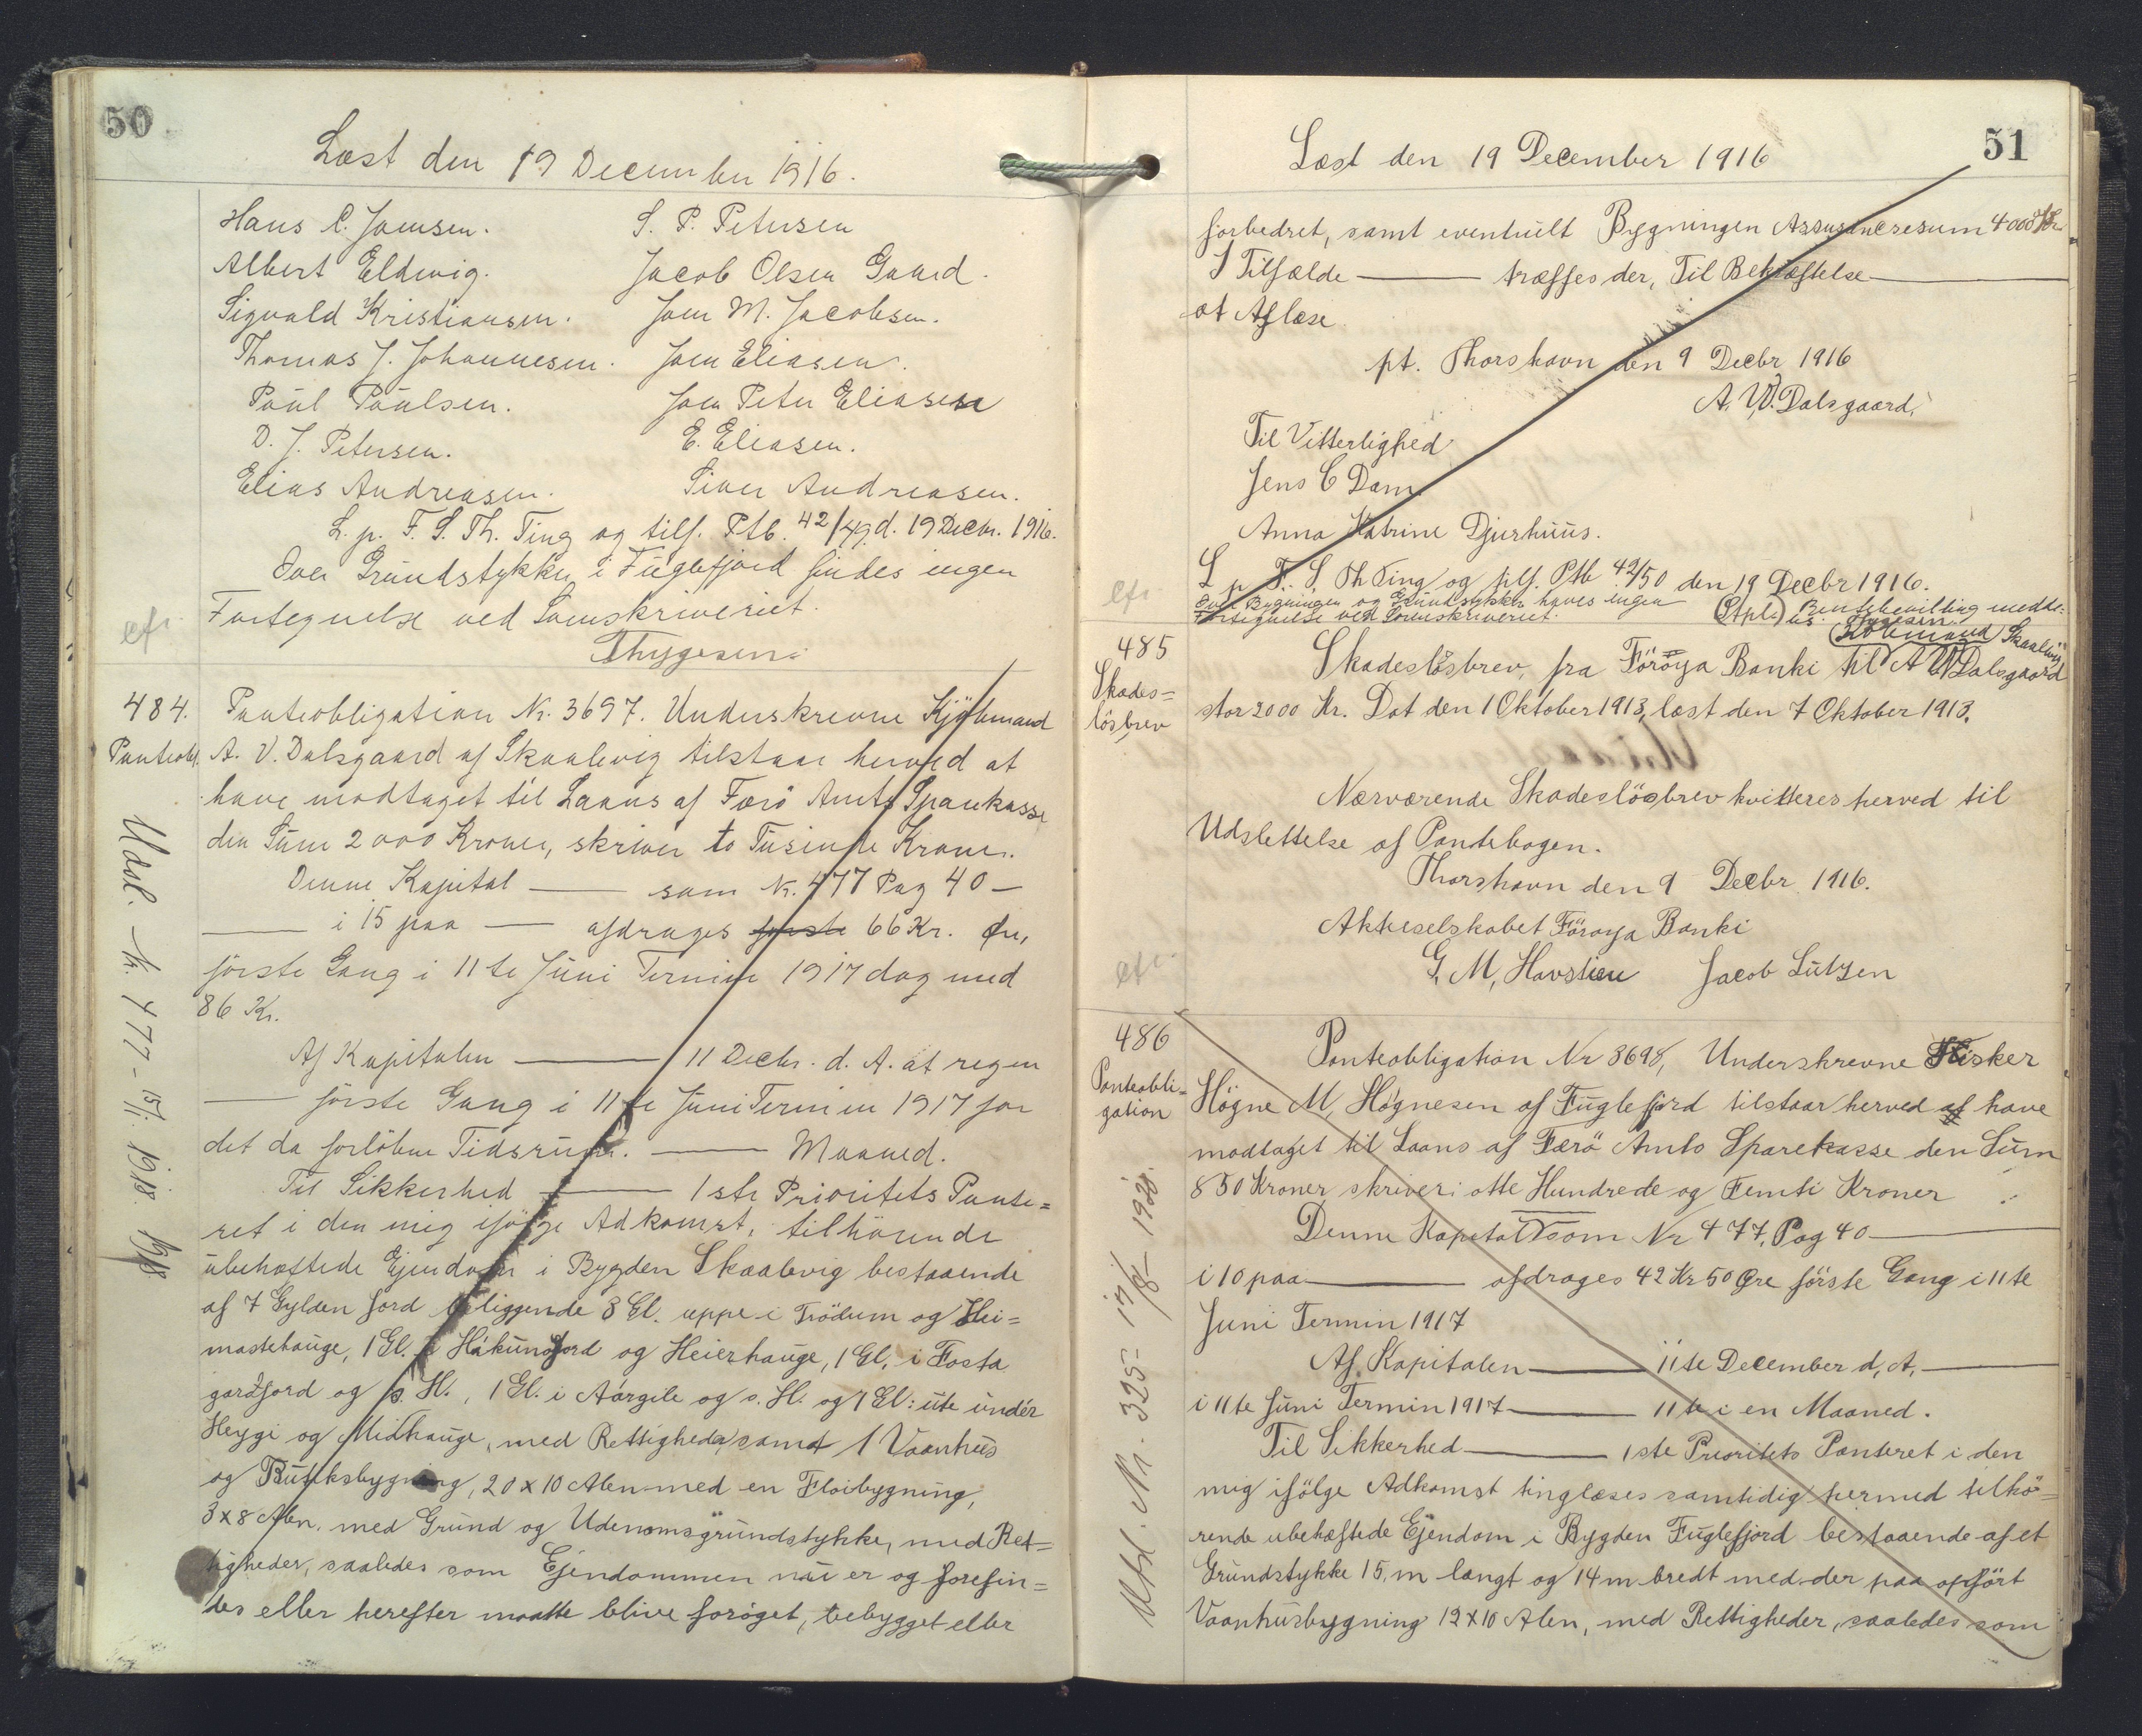 50
Læst den 19 December 1916.
Hans C. Joensen. S. P. Petersen
Albert Eldevig. Jacob Olsen Gaard.
Sigvald Kristiansen. Joen M. Jacobsen.
Thomas J. Johannesen. Joen Eliasen.
Paul Paulsen. Joen Peter Eliasen
D. J. Petersen. E. Eliasen.
Elias Andreasen. Siver Andreasen.
L. p. F. S. Th. Ting og tilf. Ptb. 42/49 d. 19 Decbr. 1916.
Over Grundstykke i Fuglefjord findes ingen
Fortegnelse ved Sorenskriveriet.
efr.
Thygesen.
484.
Panteobl.
Panteobligation Nr. 3697. Underskrevne Kjøbmand
A. V. Dalsgaard af Skaalevig tilstaar herved at
have modtaget til Laans af Færö Amts Sparekasse
den Sum 2000 Kroner, skriver to Tusinde Kroner.
Denne Kapital — som Nr. 477 Pag 40 —
— i 15 paa — afdrages første 66 Kr. Øre,
förste Gang i 11te Juni Termin 1917 dog med
86 Kr.
Af Kapitalen — 11 Decbr. d. A. at regne
— förste Gang i 11te Juni Termin 1917 for
det da forlöbne Tidsrum. — Maaned.
Til Sikkerhed — 1ste Prioritets Pante=
ret i den mig ifölge Adkomst, tilhörende
ubehæftede Ejendom i Bygden Skaalevig bestaaende
af 7 Gylden Jord beliggende 3 Gl. uppe i Tröðum og Hei=
mastehauge, 1 Gl. i Hákunojord og Heierhauge, 1 Gl. i Fosta
gardsjord og s. H., 1 Gl. i Aárgile og s. H. og 1 Gl: úte undér
Heygi og Midhauge, med Rettigheder, samt 1 Vaanhus
og Butiksbygning, 20 x 10 Alen med en Flöibygning,
3 x 8 Alen, med Grund og Udenomsgrundstykke, med Ret=
tigheder, saaledes som Ejendommen nu er og forefin=
des eller herefter maatte blive forøget, bebygget eller
Udsl. Nr. 477 - 15/1. 1918.
51
Læst den 19 December 1916
forbedret, samt eventuelt Bygningen Assurancesum 4000 Kr
I Tilfælde — træffes der, Til Bekræftelse —
at Aflæse
pt. Thorshavn den 9 Decbr 1916
A. W. Dalsgaard.
Til Vitterlighed
Jens C Dam.
Anna Katrine Djurhuus.
L p F. S Th Ting og tilf. Ptb 42/50 den 19 Decbr 1916.
efr.
Over Bygningen og Grundstykker haves ingen
Fortegnelse ved Sorenskriveriet.
(Stpl.) Rentebevilling medde:
les. Thygesen.
485
Skades=
lösbrev
Skadeslösbrev, fra Föroya Banki til A W Dalsgaard
(Købmand Skaalevig)
stor 2000 Kr. Dat den 1 Oktober 1913, læst den 7 Oktober 1913.
Nærværende Skadeslösbrev kvitteres herved til
Udslettelse af Pantebogen.
Thorshavn den 9 Decbr. 1916.
Aktieselskabet Föroya Banki
efr.
G. M, Havsteen Jacob Lützen
486
Panteobli=
gation
Panteobligation Nr 3698, Underskrevne Fisker
Högne M, Høgnesen af Fuglefjord tilstaar herved at have
modtaget til Laans af Færö Amts Sparekasse den Sum
850 Kroner skriver: otte Hundrede og Femti Kroner
Denne Kapital som Nr 477, Pag 40 —
i 10 paa — afdrages 42 Kr 50 Øre förste Gang i 11te
Juni Termin 1917
Af. Kapitalen — 11te December d. A. —
i 11te Juni Termin 1917 — 11te i en Maaned.
Til Sikkerhed — 1ste Prioritets Panteret i den
mig ifölge Adkomst tinglæses samtidig hermed tilhö=
rende ubehæftede Ejendom i Bygden Fuglefjord bestaaende af et
Grundstykke 15, m langt og 14 m bredt med der paa opfört
Vaanhusbygning 12 x 10 Alen, med Rettigheder, saaledes som
Udsl. Nr. 325-